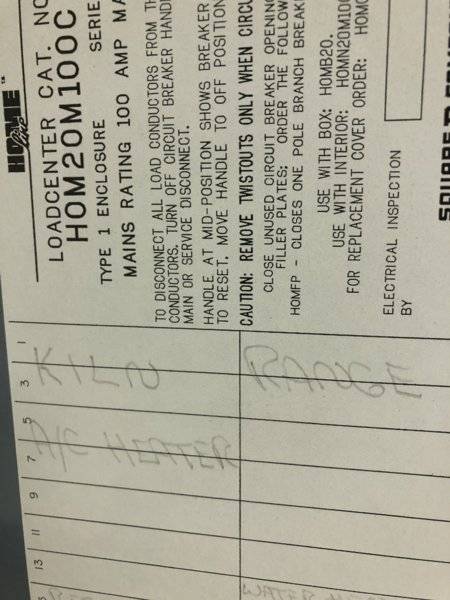 HOME
Line
TM
LOADCENTER CAT. NO
HOM20M100C
TYPE 1 ENCLOSURE SERIE
MAINS RATING 100 AMP MA
TO DISCONNECT ALL LOAD CONDUCTORS FROM TH
CONDUCTORS, TURN OFF CIRCUIT BREAKER HANDL
MAIN OR SERVICE DISCONNECT.
HANDLE AT MID-POSITION SHOWS BREAKER
TO RESET, MOVE HANDLE TO OFF POSITION
CAUTION: REMOVE TWISTOUTS ONLY WHEN CIRCU
CLOSE UNUSED CIRCUIT BREAKER OPENING
FILLER PLATES; ORDER THE FOLLOW
HOMFP - CLOSES ONE POLE BRANCH BREAKE
USE WITH BOX: HOMB20.
USE WITH INTERIOR: HOMIN20M100
FOR REPLACEMENT COVER ORDER: HOMC
ELECTRICAL INSPECTION
BY
SQUARE D COMPA
1
3
KILN
RANGE
5
7
A/C HEATER
9
11
13
WATER